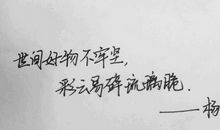 世间好物不牢坚,
彩云易碎琉璃脆.
——杨